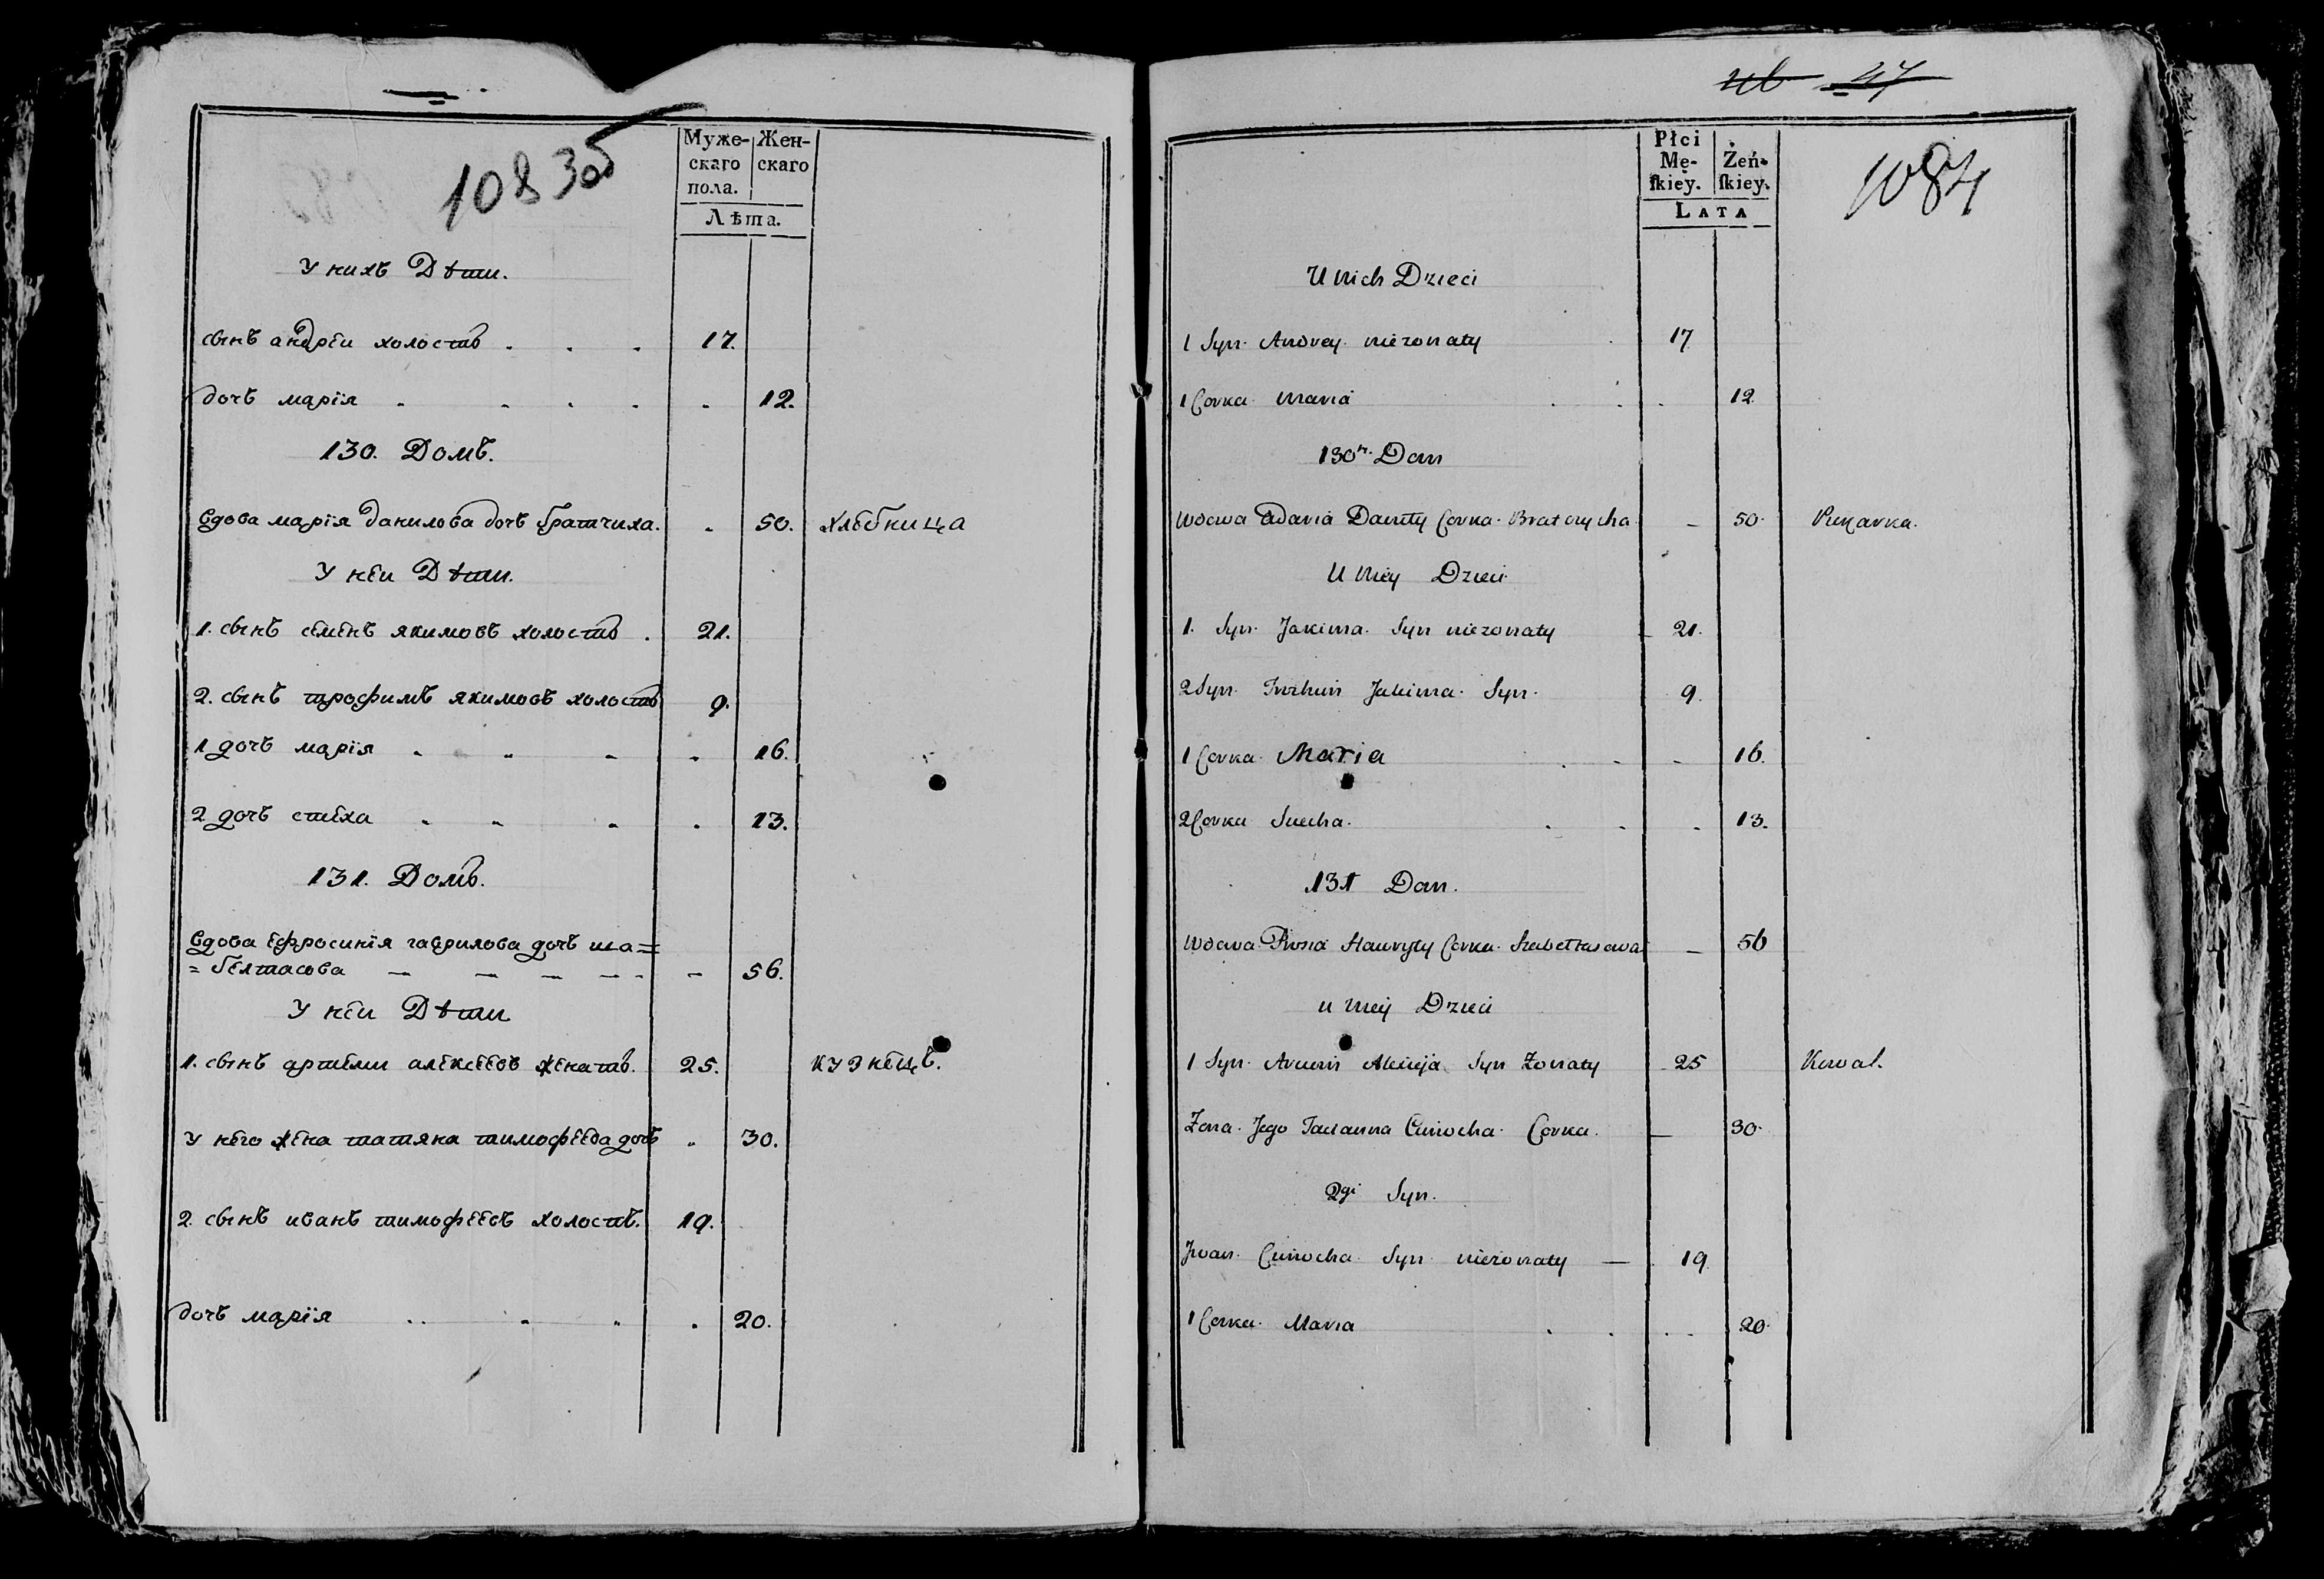 1083об
Муже-
скаго
пола.
Жен-
скаго
Лѣта.
У нихъ Дѣти.
сынъ андрѣи холостъ . . . 17.
дочъ марїя . . . . . 12.
130. Домъ.
вдова марїя данилова дочъ братчиха. . 50. хлѣбница
У нѣи Дѣти.
1. сынъ сѣмѣнъ якимовъ холостъ . 21.
2. сынъ трофимъ якимовъ холостъ 9.
1 дочъ марїя . . . . 16.
2 дочъ стѣха . . . . 13.
131. Домъ.
вдова ѣфросинїя гаврилова дочъ ша=
=бѣлтасова — — — - - - 56.
У нѣи Дѣти
1. сынъ артѣми алѣксѣѣвъ жѣнатъ. 25. кузнѣцъ.
у нѣго жѣна татяна тимофѣѣва дочъ . 30.
2. сынъ иванъ тимофѣѣвъ холостъ. 19.
дочъ марїя .. . . . 20.
47
Płci
Mę-
ſkiey.
Żeń-
ſkiey.
LATA
1084
U nich Dzieci
1 Syn Andrey niezonaty . 17
1 Corka Maria . . . 12
130ty Dom
Wdowa Daniły Corka Bratczycha — 50
U niey Dzieci
1. Syn Jakima Syn niezonaty — 21.
2 Syn Jakima Syn 9
1 Corka Maria . . - 16.
2 Corka Stecha . . . 13.
131 Dom.
Wdowa Prosia Hawryły Corka — 56
u niey Dzieci
1 Syn Alexieja Syn Zonaty 25 Kowal.
Zona Jego Tacianna Corka. — 30
2gi Syn.
Jwan Syn niezonaty — 19
1 Corka Maria . . . . 20